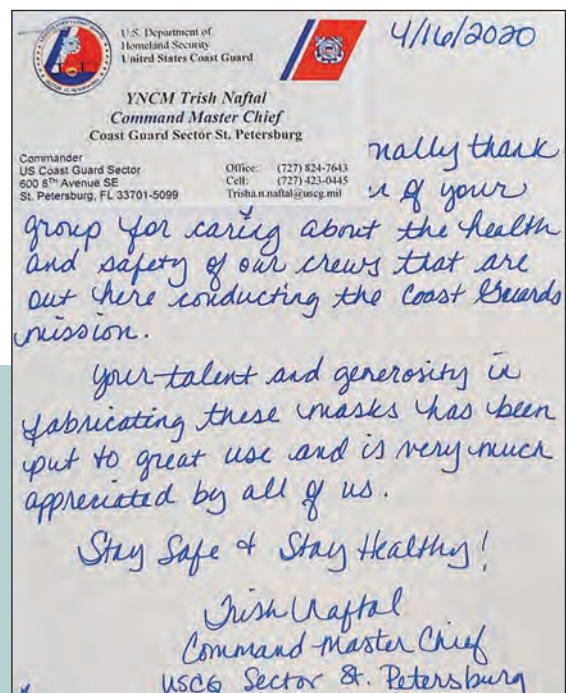 U.S. Department of
Homeland Security
United States Coast Guard
4/16/2020
YNCM Trish Naftal
Command Master Chief
Coast Guard Sector St. Petersburg
Commander
US Coast Guard Sector
600 8TH Avenue SE
St. Petersburg, FL 33701-5099
Office: (727) 824-7643
Cell: (727) 423-0445
Trisha.n.naftal@uscg.mil
nally thank
of your
group for caring about the health
and safety of our crews that are
out here conducting the Coast Guards
mission.
Your talent and generosity in
fabricating these masks has been
put to great use and is very much
appreciated by all of us.
Stay Safe & Stay Healthy!
Trish Naftal
Command Master Chief
USCG Sector St. Petersburg